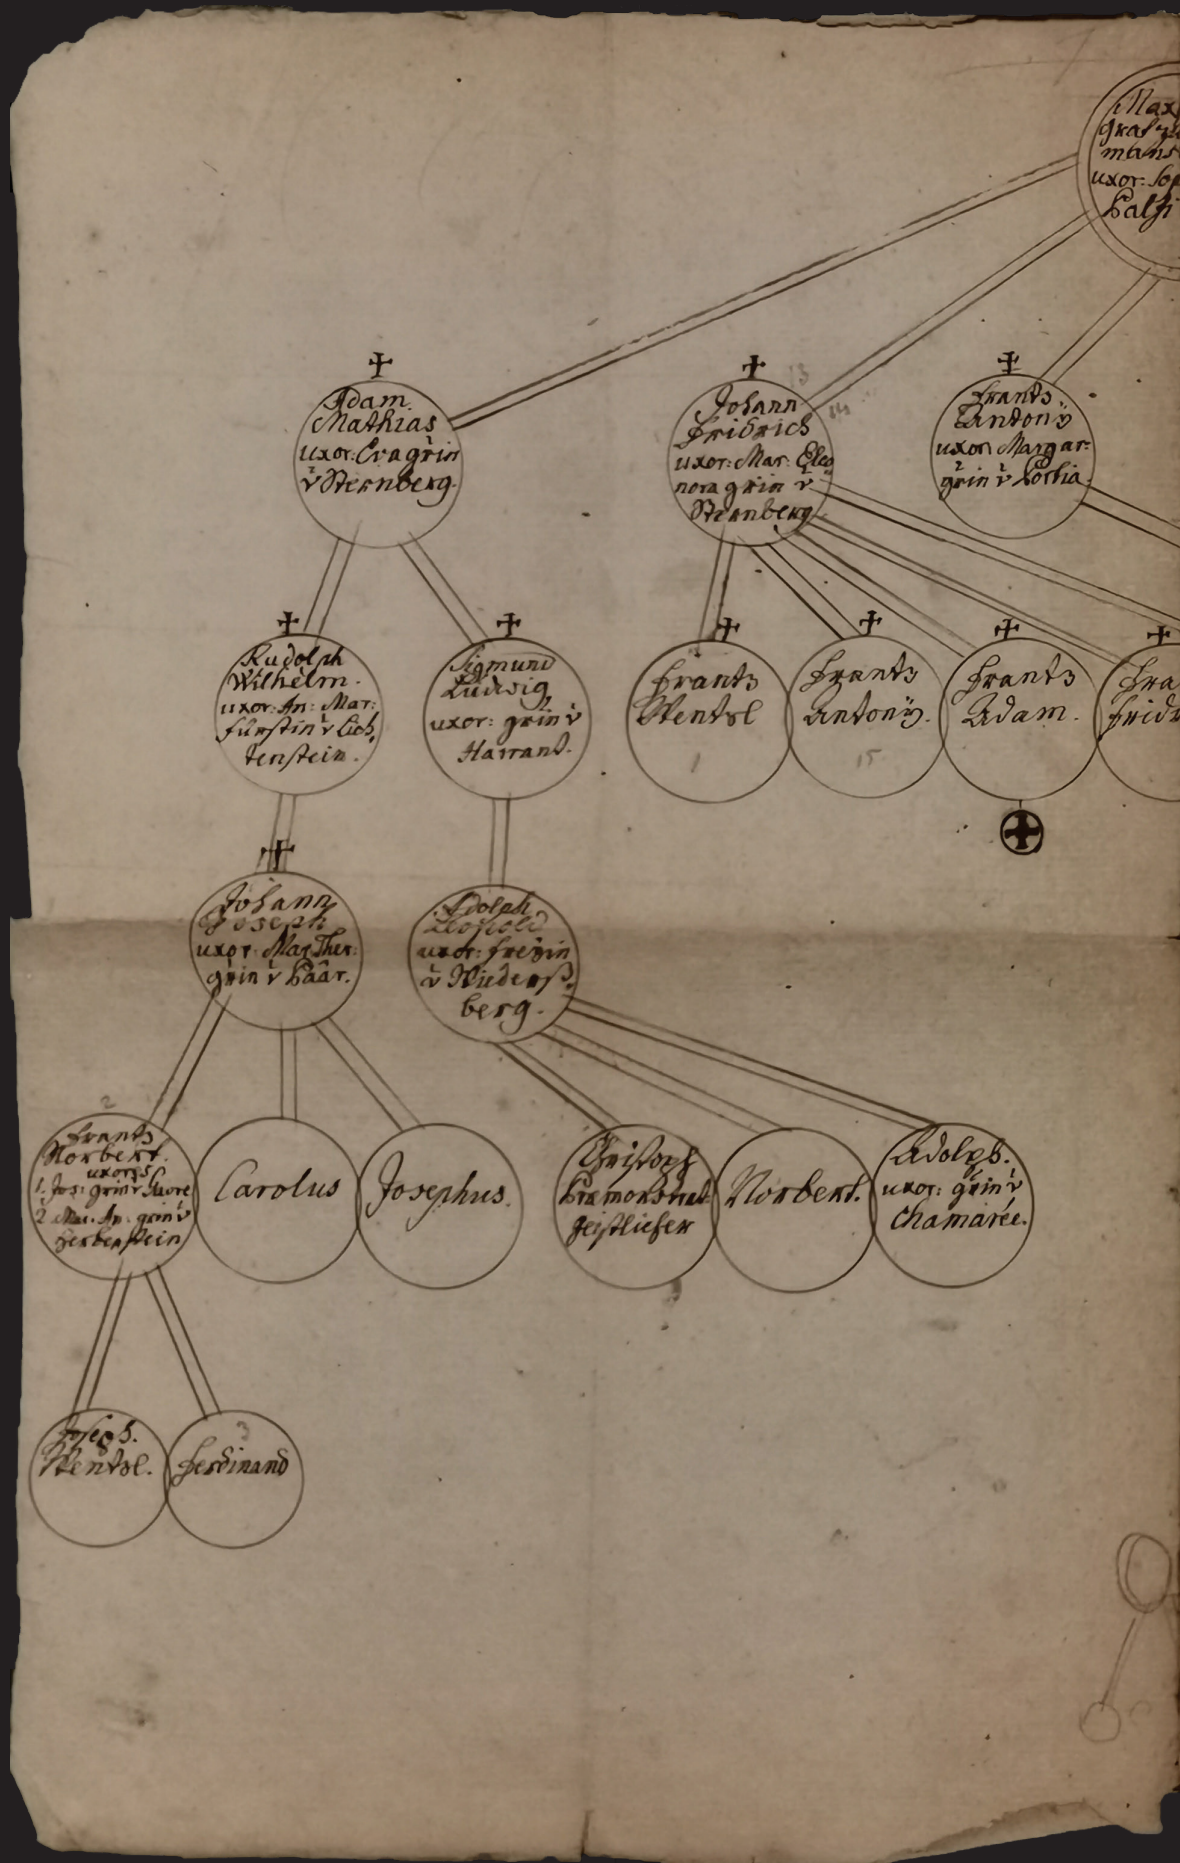 Max
graf
mans
uxor: Sop
Palfi
Adam
Mathias
uxor: Eva grin
v Sternberg.
Johann
Fridrich
uxor: Mar: Eleo
nora grin v
Sternberg
13
14
Frants
Antonÿ
uxor: Margar:
grin v Portia
Rudolph
Wilhelm.
uxor: An: Mar:
fürstin v Lich
tenstein.
Sigmund
Ludwig
uxor: grin v
Harrant.
Frants
Wentzl
1
Frants
Antonÿ.
15
Frants
Adam.
Fra
Fridr
Johann
Joseph
uxor: Mar Ther:
grin v Päär.
Adolph
Leopold
uxor: freÿin
v Wiederß
berg.
2
Frants
Norbert.
uxores
1. Jos: grin v
2 Mar. An: grin v
Herberstein
Carolus
Josephus.
Christoph
Præmonstrat
geistlicher
Norbert.
Adolph.
uxor: grin v
Chamarée.
Joseph.
Wentzl.
3
Ferdinand